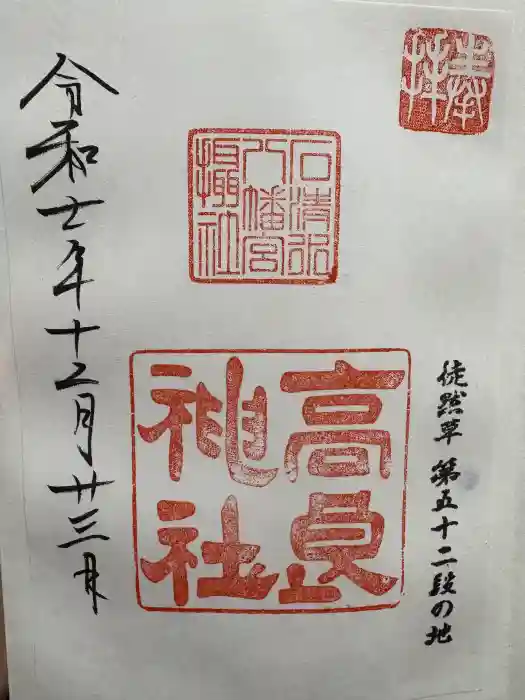 奉拝
石清水
八幡宮
攝社
高良
神社
徒然草 第五十二段の地
令和七年十二月廿三日